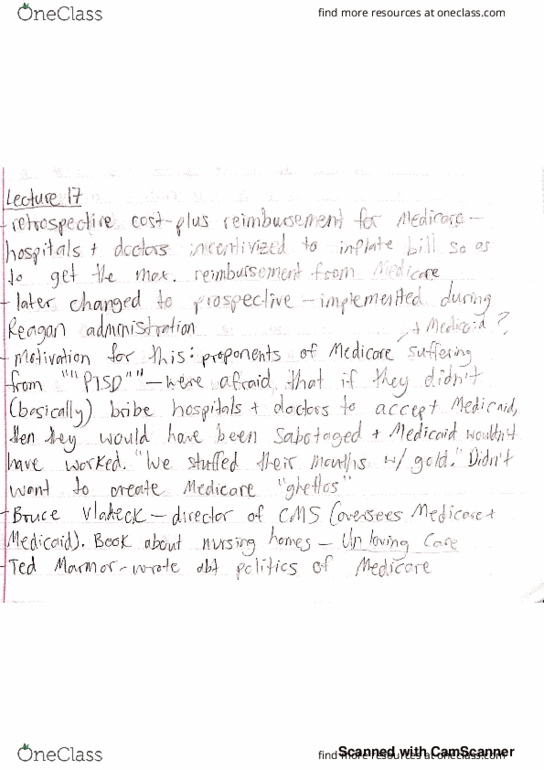 OneClass
find more resources at oneclass.com
Lecture 17
- retrospective cost-plus reimbursement for Medicare -
hospitals + doctors incentivized to inflate bill so as
to get the max. reimbursement from Medicare
- later changed to prospective - implemented during
Reagan administration
→ + Medicaid ?
- Motivation for this: proponents of Medicare suffering
from ""PTSD"" - were afraid that if they didn't
(basically) bribe hospitals + doctors to accept Medicaid,
then they would have been sabotaged + Medicaid wouldn't
have worked. "We stuffed their mouths w/ gold." Didn't
want to create Medicare "ghettos"
- Bruce Vladeck - director of CMS (oversees Medicare +
Medicaid). Book about nursing homes - Unloving Care
- Ted Marmor - wrote abt politics of Medicare
OneClass
find more resources at oneclass.com
Scanned with CamScanner